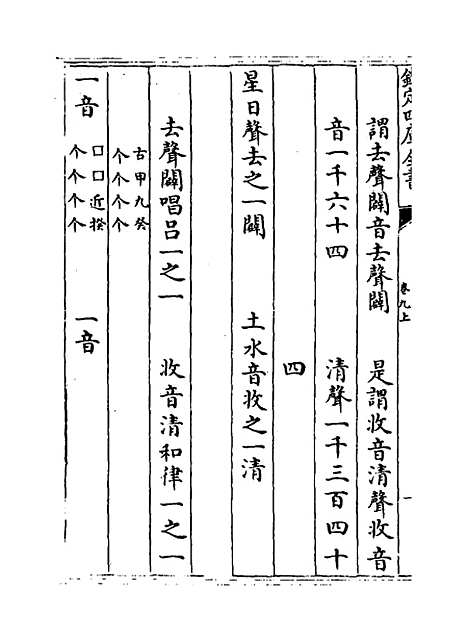 欽定四庫全書 卷九上
謂去聲闢音去聲闢 是謂收音清聲收音
音一千六十四 清聲一千三百四十
四
星日聲去之一闢 土水音收之一清
去聲闢唱呂一之一 收音清和律一之一
古甲九癸
个个个个
一音 口口近揆 一音
个个个个